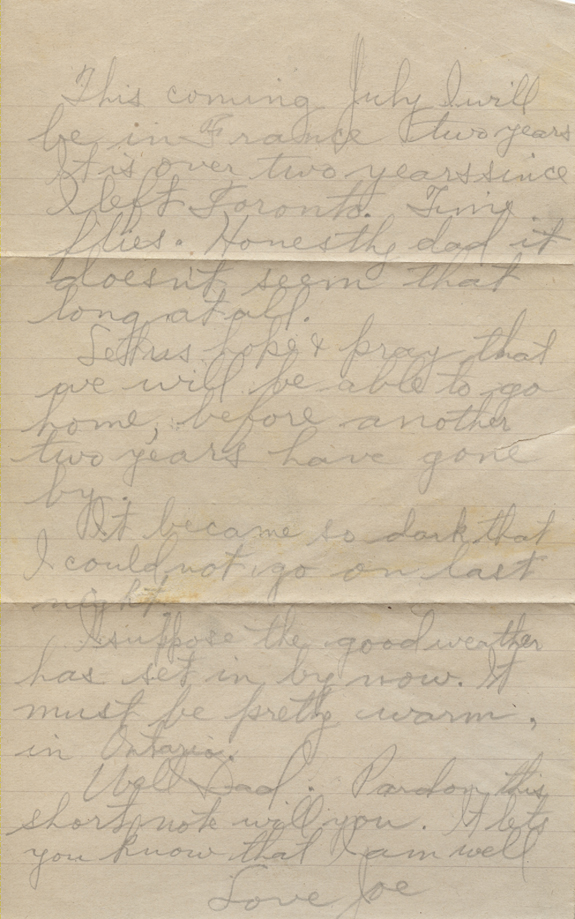 This coming July I will
be in France two years
It is over two years since
I left Toronto. Time
flies. Honestly dad it
doesn't seem that
long at all.
Let us hope & pray that
we will be able to go
home, before another
two years have gone
by.
It became so dark that
I could not go on last
night.
I suppose the good weather
has set in by now. It
must be pretty warm,
in Ontario.
Well Dad. Pardon this
short note will you. It lets
you know that I am well
Love Joe